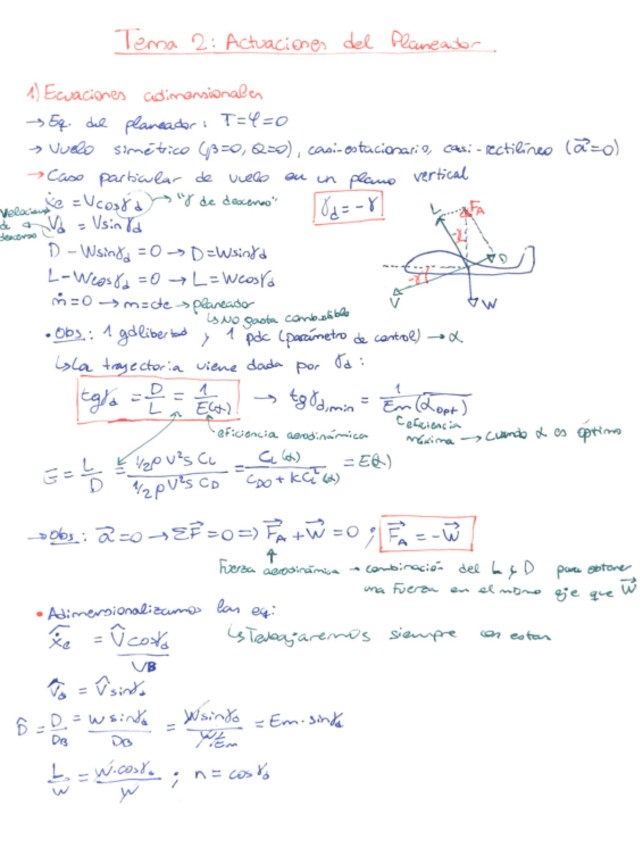 Tema 2: Actuaciones del Planeador
1) Ecuaciones adimensionales
→ Eq. del planeador: T=φ=0
→ Vuelo simétrico (β=0, Q=0), casi-estacionario, casi-rectilíneo (a⃗=0)
→ Caso particular de vuelo en un plano vertical
ẋe = Vcosγd → "γ de descenso"
γd = -γ
Velocidad de descenso ← Vd = Vsinγd
D - Wsinγd = 0 → D = Wsinγd
L - Wcosγd = 0 → L = Wcosγd
ṁ = 0 → m = cte → planeador
↳ No gasta combustible
L FA -γ D -γ V W
• Obs.: 1 gdlibertad y 1 pdc (parámetro de control) → α
↳ La trayectoria viene dada por γd:
tgγd = D/L = 1/E(α) → tgγd,min = 1/Em(αopt)
eficiencia aerodinámica
eficiencia máxima → cuando α es óptimo
E = L/D = ½ρV²S CL / ½ρV²S CD = CL(α) / CD0 + kCL²(α) = E(α)
→ Obs: a⃗=0 → ΣF⃗=0 => F⃗A + W⃗ = 0 ; F⃗A = -W⃗
Fuerza aerodinámica → combinación del L y D para obtener
una fuerza en el mismo eje que W⃗
• Adimensionalizamos las eq:
↳ Trabajaremos siempre con estas
x̂̇e = V̂cosγd / VB
V̂d = V̂sinγd
D̂ = D/DB = Wsinγd/DB = Wsinγd / W/Em = Em·sinγd
L/W = W·cosγd/W ; n = cosγd